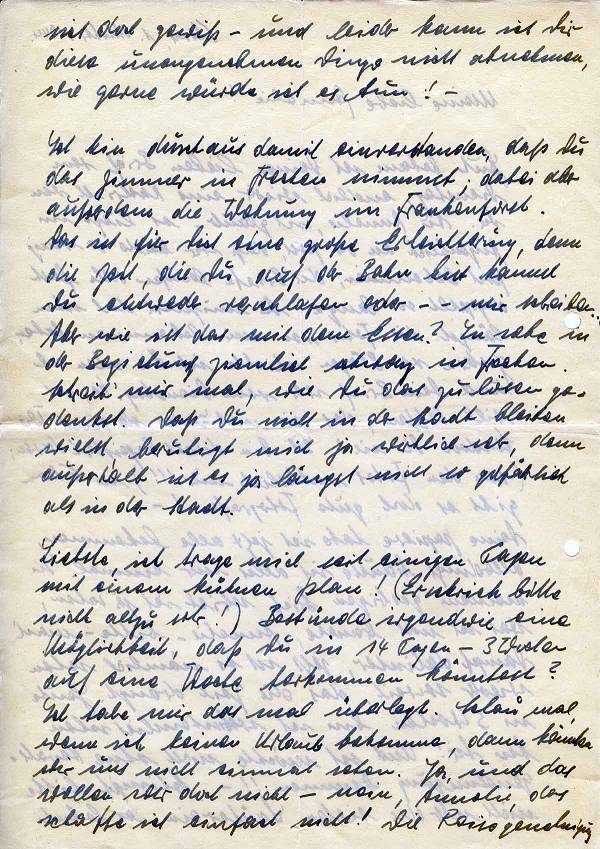 ist doch gewiß – und leider kann ich dir
diese unangenehmen Dinge nicht abnehmen,
wie gerne würde ich es tun! –
Ich bin durchaus damit einverstanden, daß Du
das Zimmer in Frechen nimmst, dabei aber
außerdem die Wohnung im Frankenforst.
Das ist für dich eine große Erleichterung, denn
die Zeit, die Du auf der Bahn bist kannst
Du entweder verschlafen oder – – mir schreiben.
Aber wie ist das mit dem Essen? Ich sehe in
der Beziehung ziemlich schwarz in Frechen.
Schreib' mir mal, wie Du das zu lösen ge-
denkst. Daß Du nicht in der Stadt bleiben
willst, beruhigt mich ja wirklich sehr, denn
außerhalb ist es ja längst nicht so gefährlich
als in der Stadt.
Liebste, ich trage mich seit einigen Tagen
mit einem kühnen Plan! (Erschrick bitte
nicht allzu sehr!) Bestünde irgendwie eine
Möglichkeit, daß Du in 14 Tagen – 3 Wochen
auf eine Woche herkommen könntest?
Ich habe mir das mal überlegt. Schau mal,
wenn ich keinen Urlaub bekomme, dann könnten
wir uns nicht einmal sehen. Ja, und das
wollen wir doch nicht – nein, das
schaffe ich einfach nicht! Die Reisegenehmigung